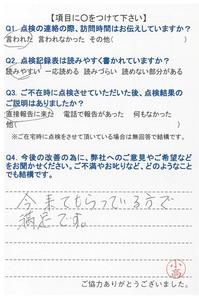 【項目に○をつけて下さい】
Q1. 点検の連絡の際、訪問時間はお伝えしていますか?
言われた 言われなかった その他( )
Q2. 点検記録表は読みやすく書かれていますか?
読みやすい 一応読める 読みづらい 読めない部分がある
Q3. ご不在時に点検させていただいた後、点検結果の
ご説明はありましたか?
直接報告に来た 電話で報告があった 何もなかった
他( )
※ご在宅時に点検をさせて頂いている場合は無回答で結構です。
Q4. 今後の改善の為に、弊社へのご意見やご希望などを
お聞かせください。ご不満やお叱りなど、どのようなこと
でも結構です。
今来てもらっている方で
満足です。
小高
ご協力ありがとうございました。